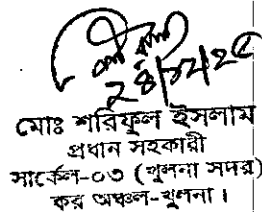 মোঃ শরিফুল ইসলাম
প্রধান সহকারী
সার্কেল-০৩ (খুলনা সদর)
কর অঞ্চল-খুলনা।